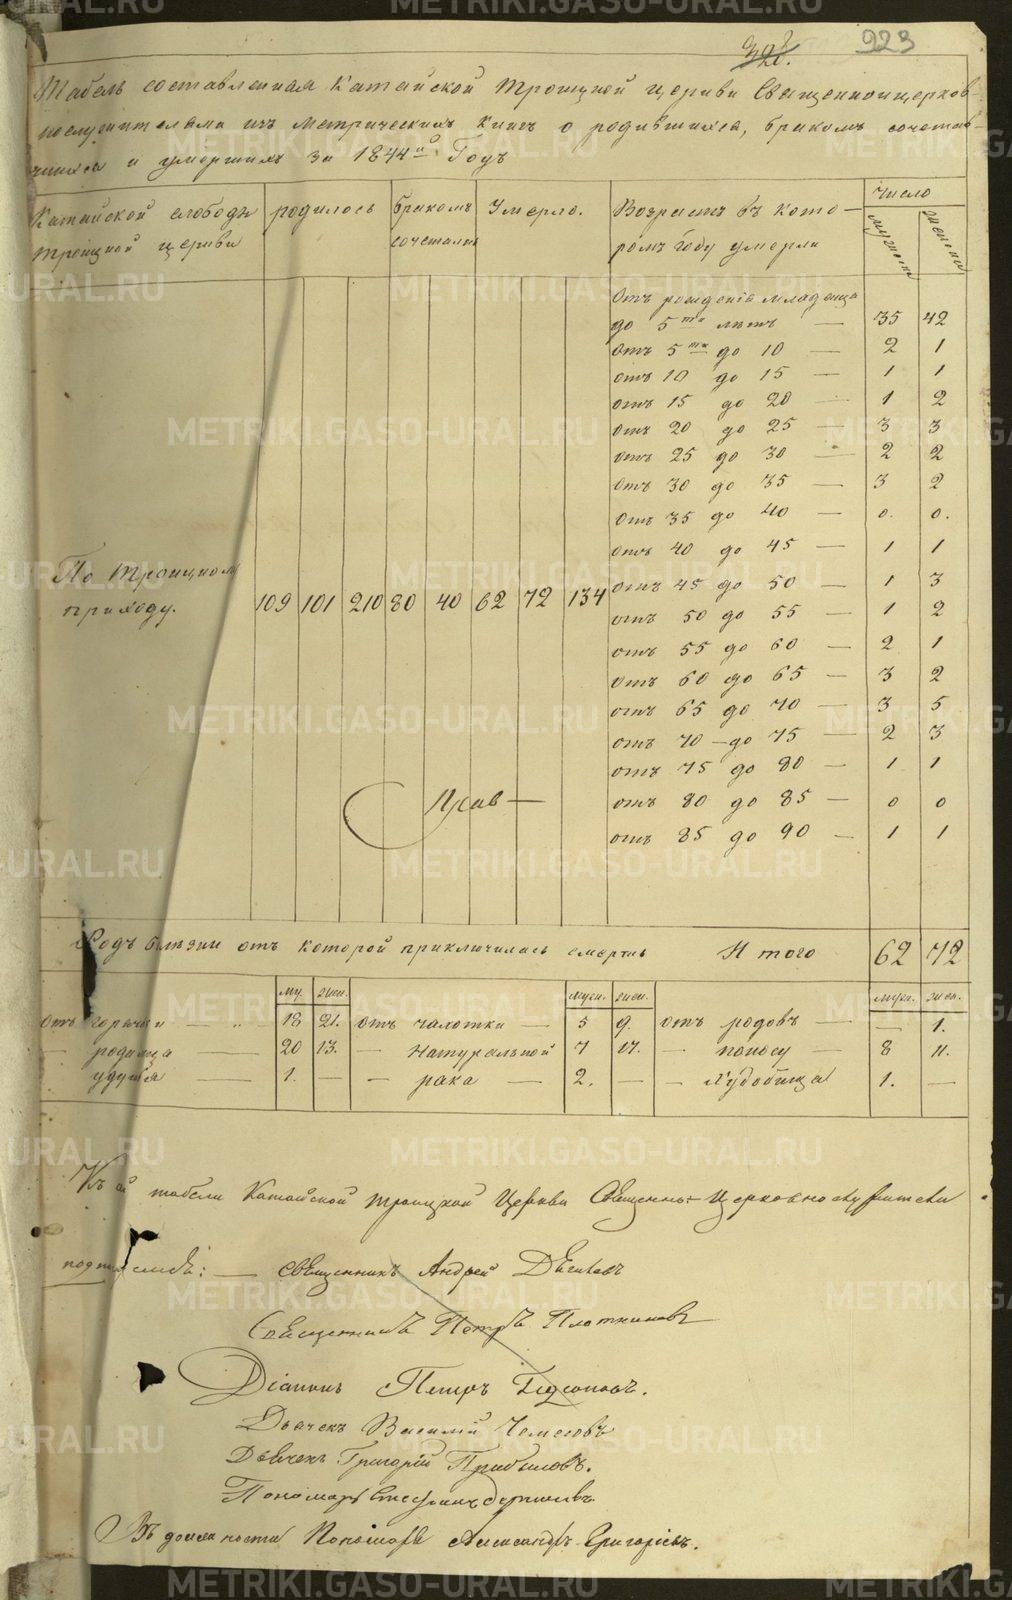 923
Табель составленная Катайской Троицкой церкви Священноцерков-
нослужителями изъ метрическихъ книгъ о родившихся, бракомъ сочетав-
шихся и умершихъ за 1844й Годъ
Катайской слободы Троицкой церкви | родилось | бракомъ сочетались | умерло. | Возрастъ въ кото-ромъ году умерли | Число мужескъ | женскъ
Отъ рожденія младенца
до 5ти летъ — 35 42
отъ 5ти до 10 — 2 1
отъ 10 до 15 — 1 1
отъ 15 до 20 — 1 2
отъ 20 до 25 — 3 3
отъ 25 до 30 — 2 2
отъ 30 до 35 — 3 2
отъ 35 до 40 — 0. 0.
отъ 40 до 45 — 1 1
По Троицкому приходу. 109 101 210 80 40 62 72 134
отъ 45 до 50 — 1 3
отъ 50 до 55 — 1 2
отъ 55 до 60 — 2 1
отъ 60 до 65 — 3 2
отъ 65 до 70 — 3 5
отъ 70 — до 75 — 2 3
отъ 75 до 80 — 1 1
отъ 80 до 85 — 0 0
отъ 85 до 90 — 1 1
Родъ болезни отъ которой приключилась смерть Итого 62 72
му. жен. муж. жен. муж. жен.
отъ горячки — 18 21. отъ чахотки — 5 9. отъ родовъ — — 1.
— родимца — 20 13. — натуральной 7 17. — поносу — 8 11.
удушья — 1. — — рака — 2. — — худобища 1. —
Къ табели Катайской Троицкой Церкви Священно-Церковнослужители
подписались: — Священникъ Андрей
Священникъ Петръ Плотниковъ
Діаконъ Петръ
Дьячекъ Василій
Дьячекъ Григорій Прибыловъ.
Пономарь Стефанъ
Въ должности Пономаря Александръ Григорьевъ.
METRIKI.GASO-URAL.RU